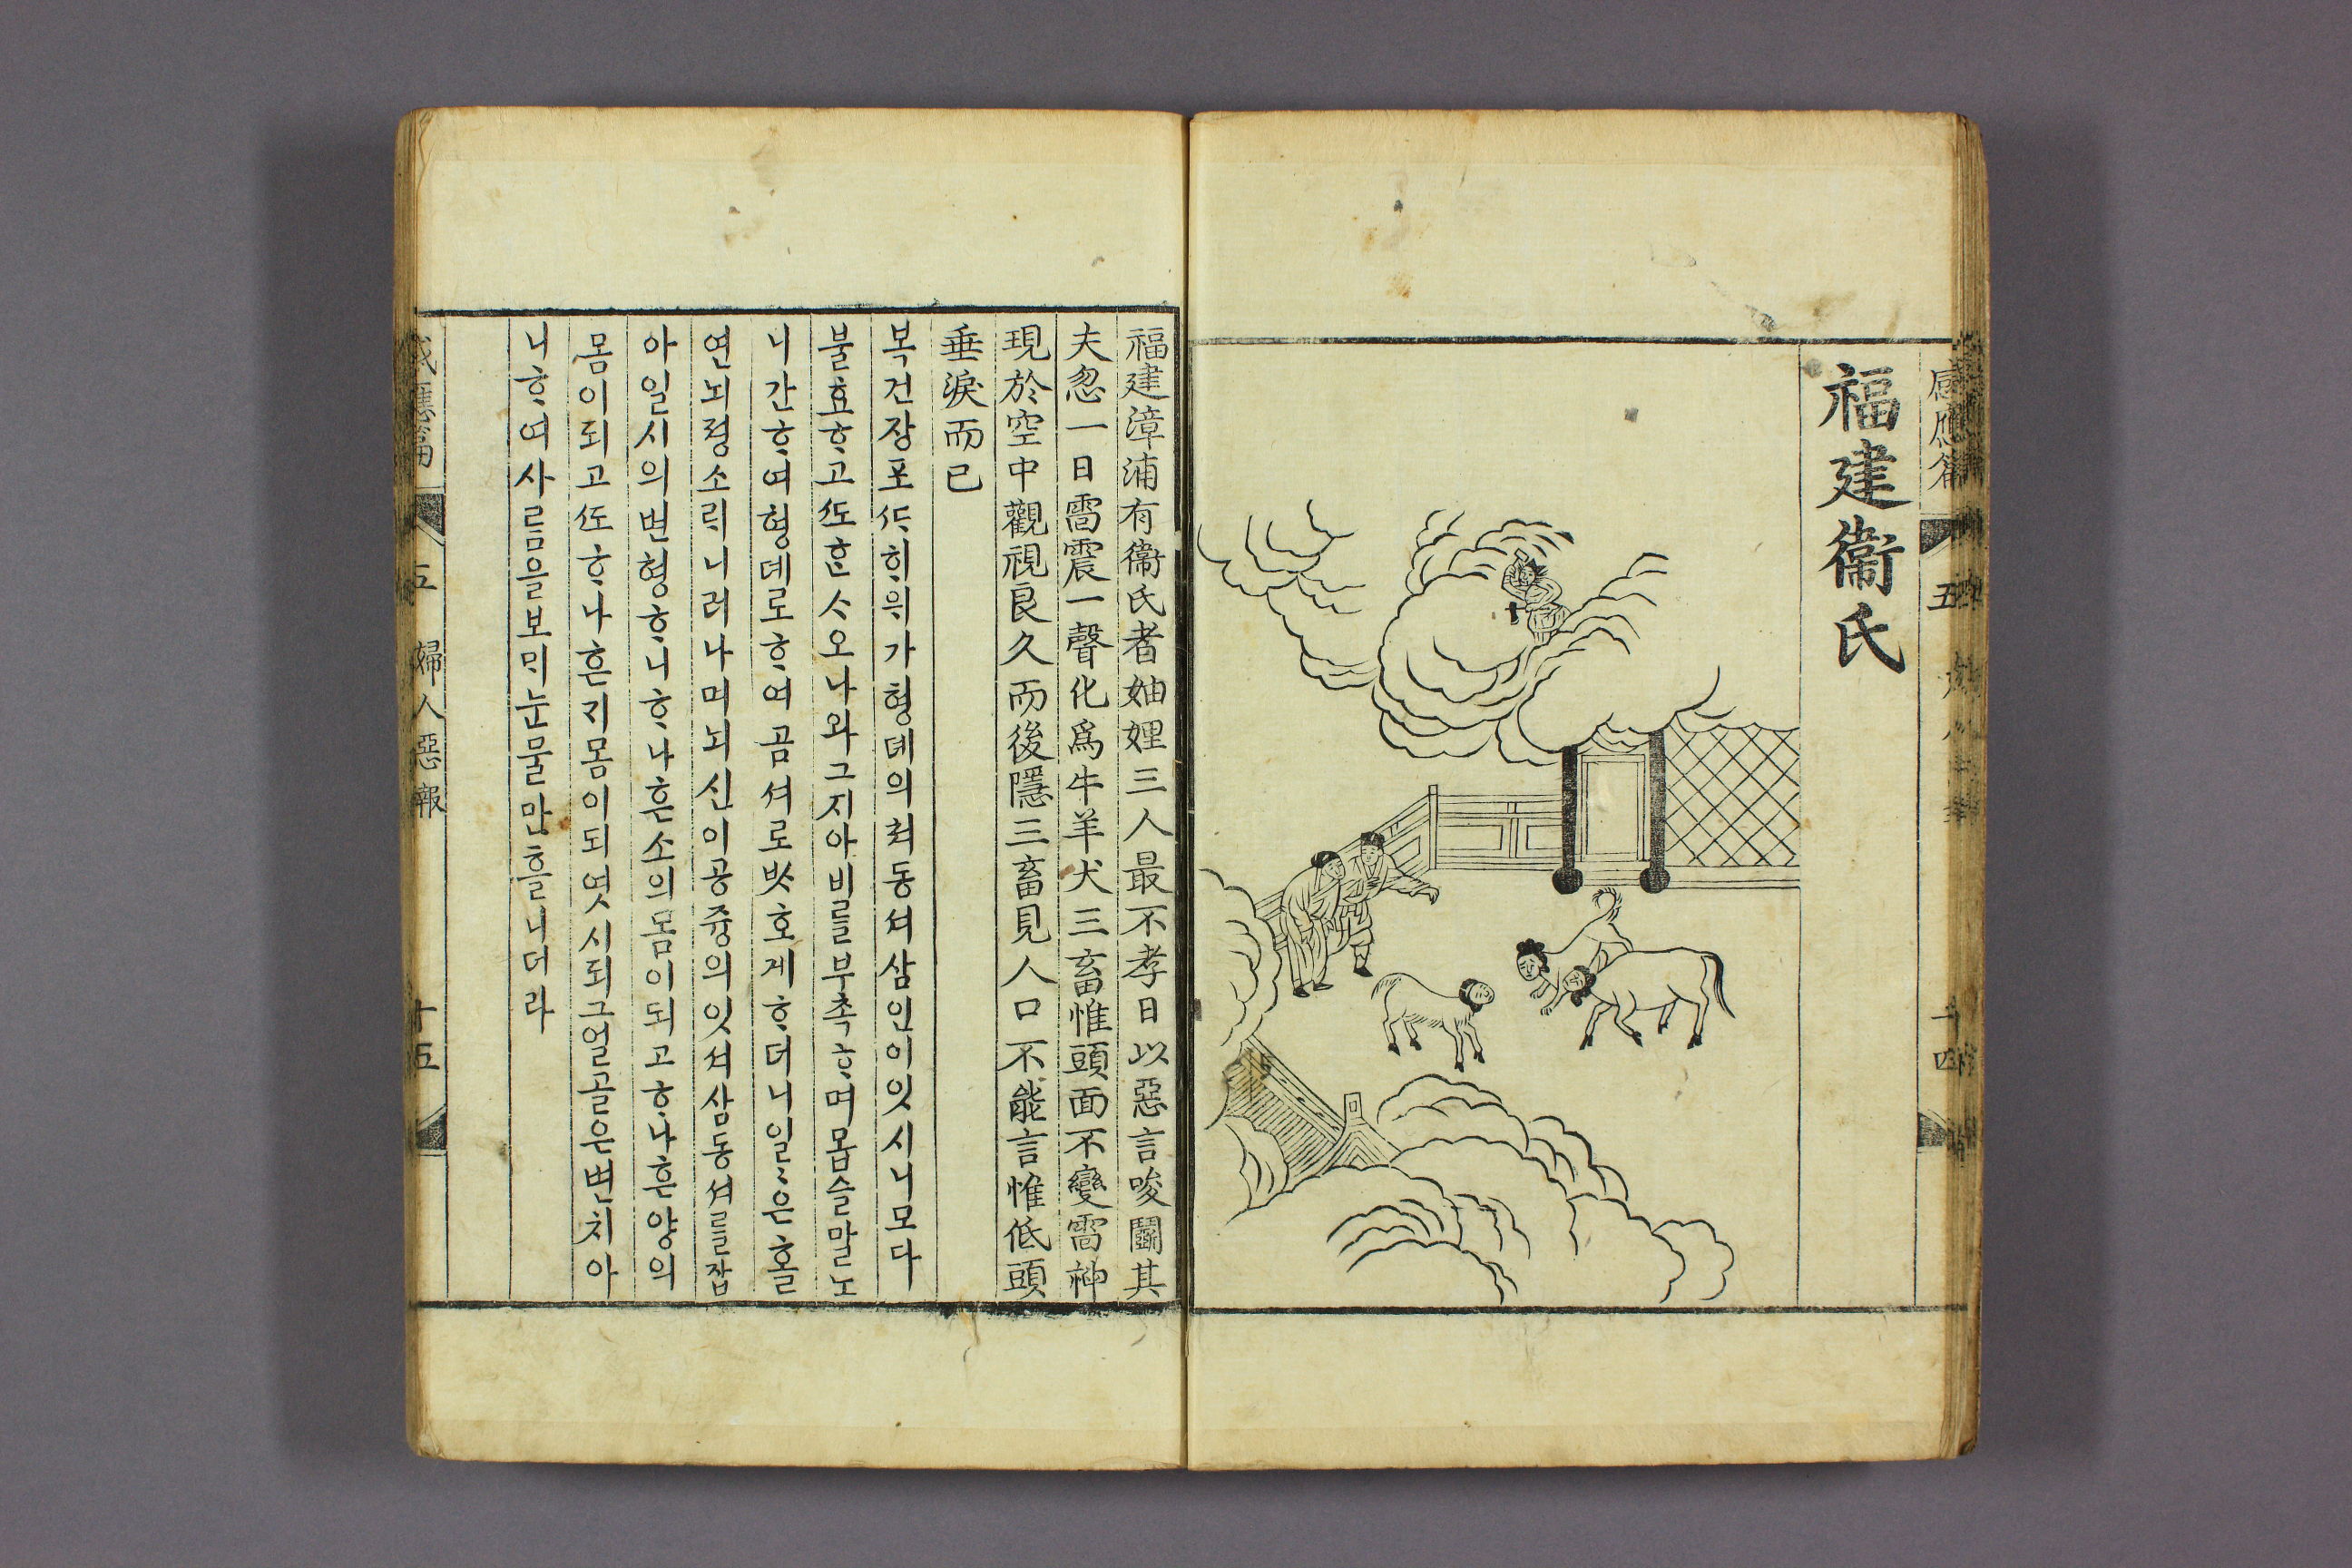 感應篇 五 十四
福建衞氏
福建漳浦有衞氏者妯娌三人最不孝日以惡言唆鬪其
夫忽一日雷震一聲化爲牛羊犬三畜惟頭面不變雷神
現於空中觀視良久而後隱三畜見人口不能言惟低頭
垂淚而已
복건장포ᄯᆞᄒᆡ위가형뎨의쳐동셔삼인이잇시니모다
불효ᄒᆞ고ᄯᅩᄒᆞᆫᄉᆞ오나와그지아비를부촉ᄒᆞ며몹슬말노
니간ᄒᆞ여형뎨로ᄒᆞ여곰셔로ᄡᆞ호게ᄒᆞ더니일〻은홀
연뇌졍소ᄅᆡ니러나며뇌신이공즁의잇셔삼동셔를잡
아일시의변형ᄒᆞ니ᄒᆞ나흔소의몸이되고ᄒᆞ나흔양의
몸이되고ᄯᅩᄒᆞ나흔ᄀᆡ몸이되엿시되그얼골은변치아
니ᄒᆞ여사름을보ᄆᆡ눈물만흘니더라
感應篇 五 婦人惡報 十五